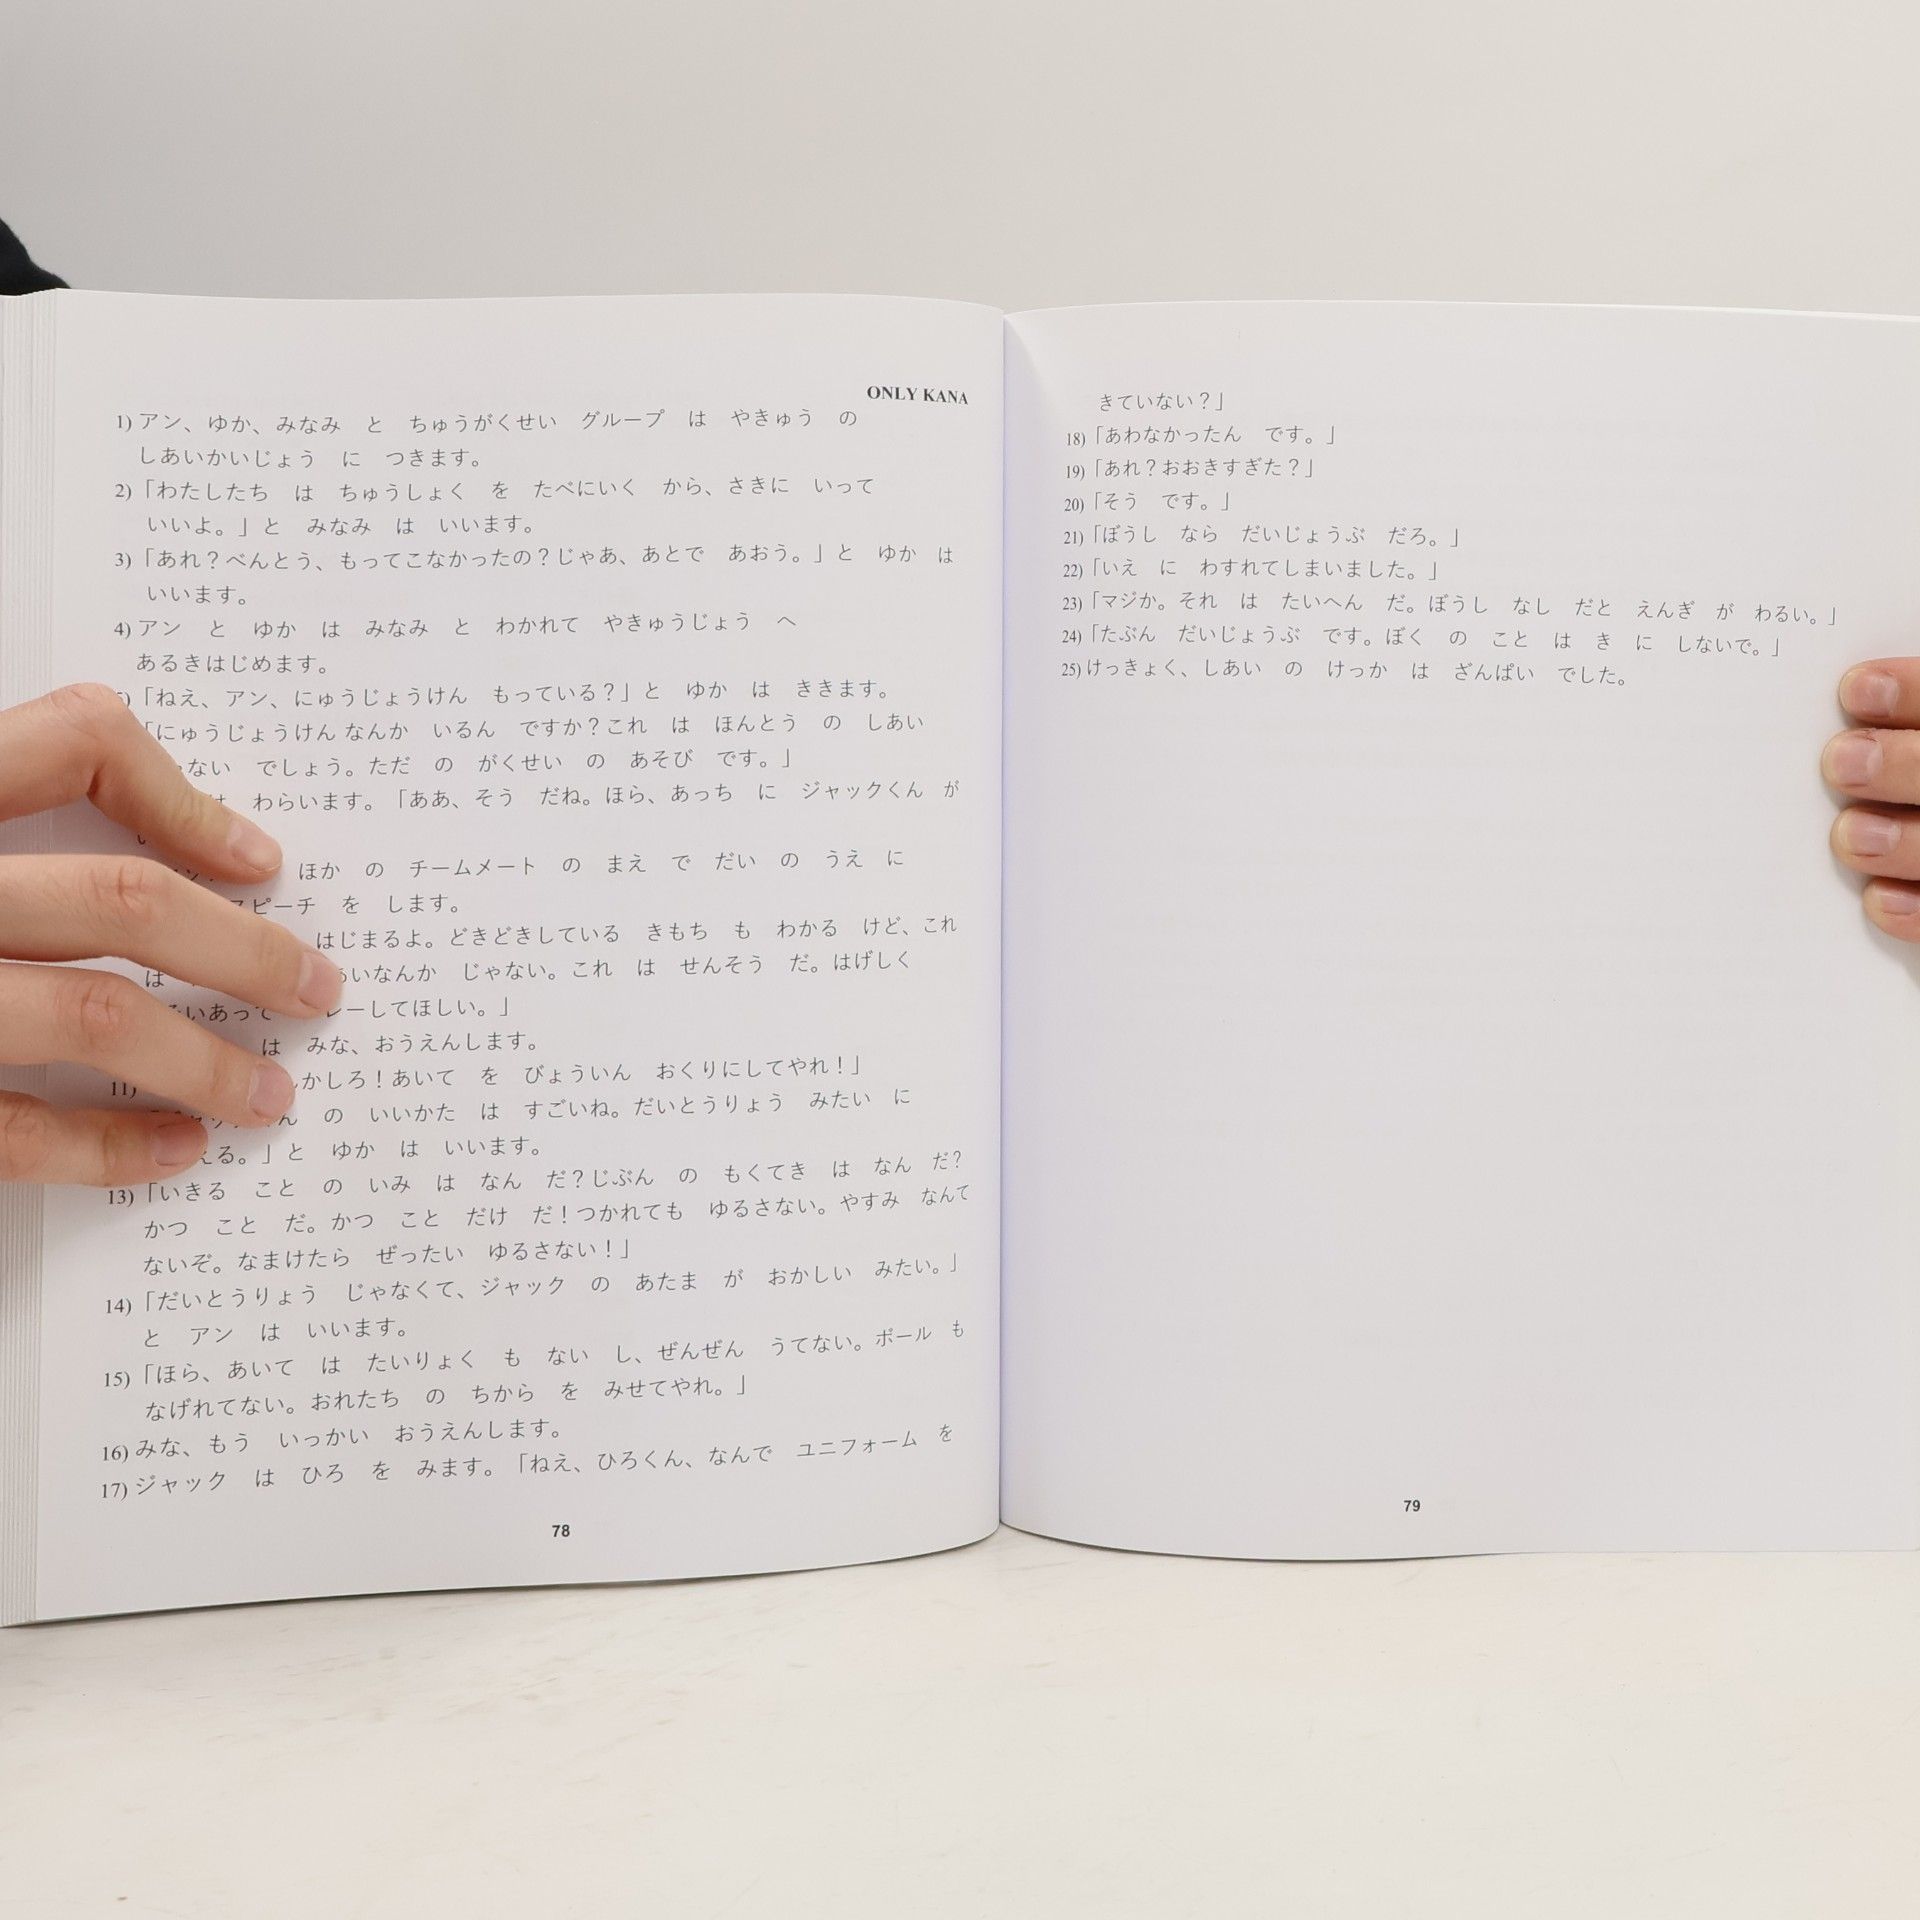 ONLY KANA
1) アン、ゆか、みなみ と ちゅうがくせい グループ は やきゅう の
しあいかいじょう に つきます。
2)「わたしたち は ちゅうしょく を たべにいく から、さきに いって
いいよ。」と みなみ は いいます。
3)「あれ？べんとう、もってこなかったの？じゃあ、あとで あおう。」と ゆか は
いいます。
4) アン と ゆか は みなみ と わかれて やきゅうじょう へ
あるきはじめます。
「ねえ、アン、にゅうじょうけん もっている？」と ゆか は ききます。
「にゅうじょうけん なんか いるん ですか？これ は ほんとう の しあい
ない でしょう。ただ の がくせい の あそび です。」
は わらいます。「ああ、そう だね。ほら、あっち に ジャックくん が
ほか の チームメート の まえ で だい の うえ に
スピーチ を します。
はじまるよ。どきどきしている きもち も わかる けど、これ
は いなんか じゃない。これ は せんそう だ。はげしく
いあって レーしてほしい。」
は みな、おうえんします。
11) かしろ！あいて を びょういん おくりにしてやれ！」
ん の いいかた は すごいね。だいとうりょう みたい に
える。」と ゆか は いいます。
13)「いきる こと の いみ は なん だ？じぶん の もくてき は なん だ？
かつ こと だ。かつ こと だけ だ！つかれても ゆるさない。やすみ なんて
ないぞ。なまけたら ぜったい ゆるさない！」
14)「だいとうりょう じゃなくて、ジャック の あたま が おかしい みたい。」
と アン は いいます。
15)「ほら、あいて は たいりょく も ない し、ぜんぜん うてない。ボール も
なげれてない。おれたち の ちから を みせてやれ。」
16) みな、もう いっかい おうえんします。
17) ジャック は ひろ を みます。「ねえ、ひろくん、なんで ユニフォーム を
78
きていない？」
18)「あわなかったん です。」
19)「あれ？おおきすぎた？」
20)「そう です。」
21)「ぼうし なら だいじょうぶ だろ。」
22)「いえ に わすれてしまいました。」
23)「マジか。それ は たいへん だ。ぼうし なし だと えんぎ が わるい。」
24)「たぶん だいじょうぶ です。ぼく の こと は き に しないで。」
25) けっきょく、しあい の けっか は ざんぱい でした。
79